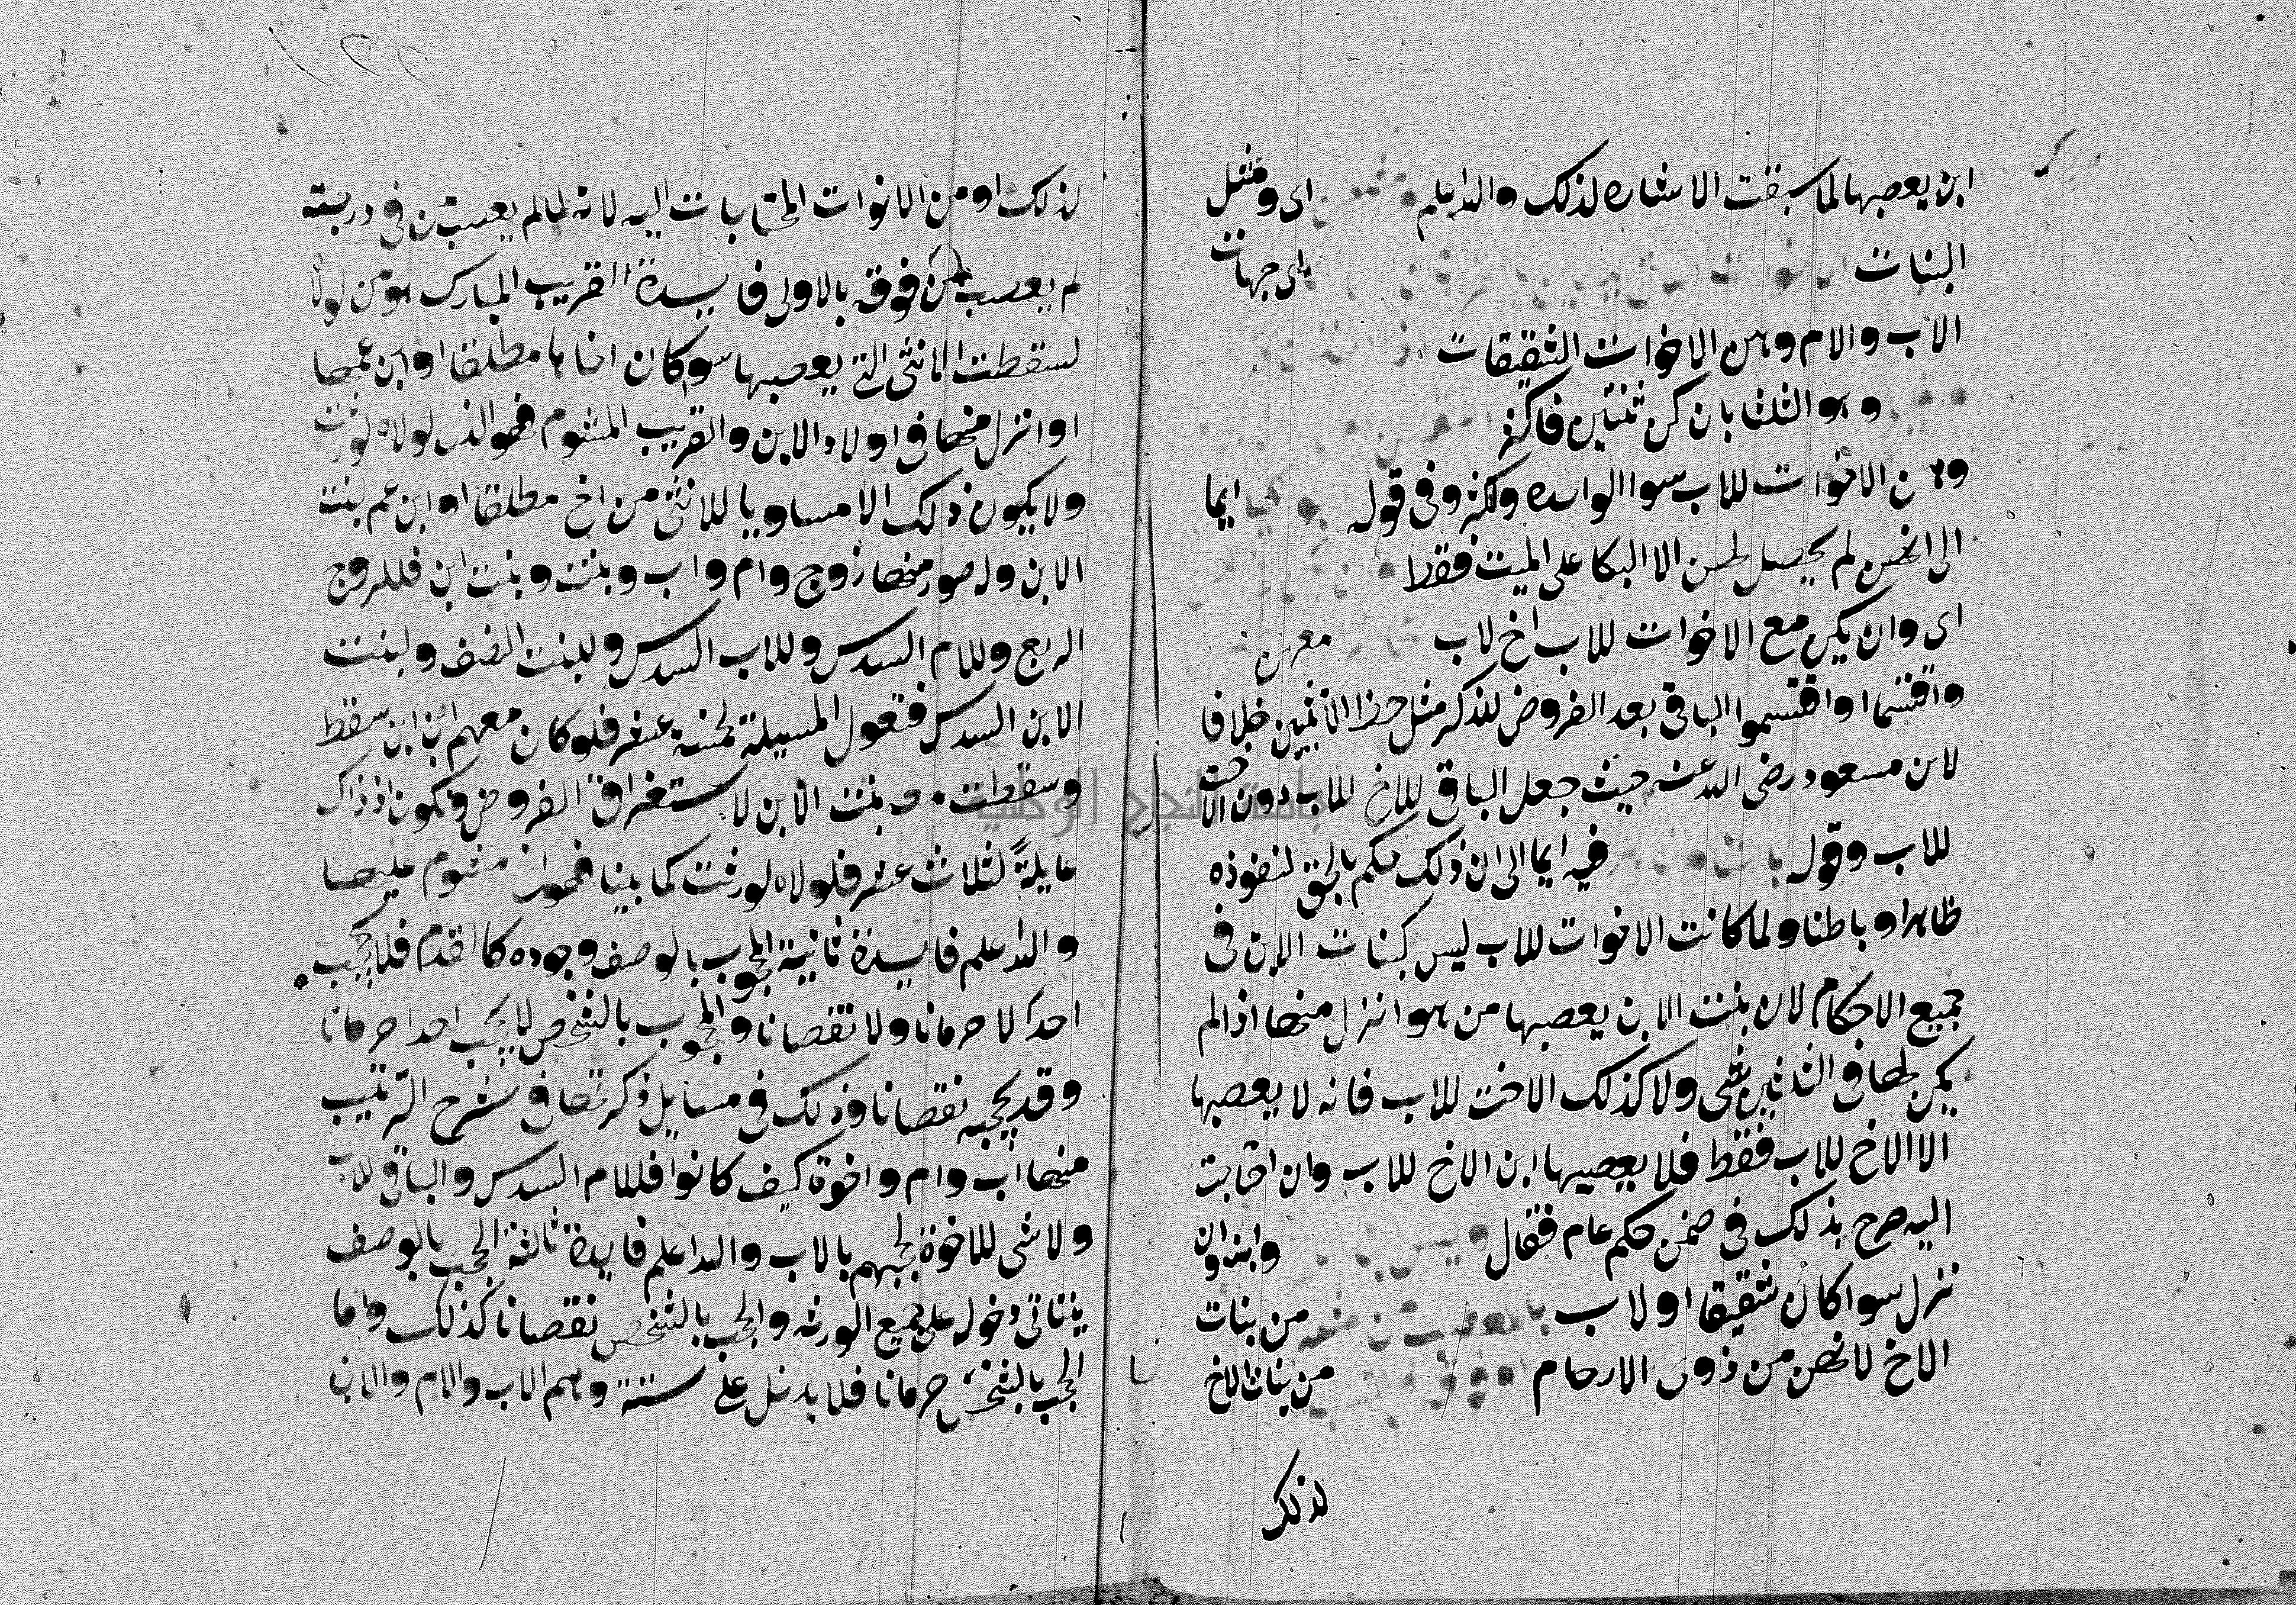 ابن يعصبها لما سبقت الاشاره لذلك والله اعلم اى ومثل
البنات اى جهات
الاب والام وهن الاخوات الشقيقات
وهو الثلثا بان كن ثنتين فاكثر
وهن الاخوات للاب سوا الواحده واكثر وفى قوله ايما
الى انهن لم يحصل لهن الا البكا على الميت فقط
اى وان يكن مع الاخوات للاب اخ لاب
واقتسما او اقتسموا الباقى بعد الفروض للذكر مثل حظ الانثيين خلافا
لابن مسعود رضى الله عنه حيث جعل الباقى للاخ للاب دون الاخت
للاب وقوله فيه ايما الى ان ذلك حكم بالحق لنفوذه
ظاهرا وباطنا ولما كانت الاخوات للاب ليس كبنات الابن فى
جميع الاحكام لان بنت الابن يعصبها من هو انزل منها اذا لم
يكن لها فى الثلثين شى ولا كذلك الاخت للاب فانه لا يعصبها
الا الاخ للاب فقط فلا يعصبها ابن الاخ للاب وان احتاجت
اليه صرح بذلك فى ضمن حكم عام فقال وليس وابنه وان
نزل سوا كان شقيقا او لاب بالمعصب من مثله من بنات
الاخ لانهن من ذوى الارحام او فوقه من بنات الاخ
لذلك
لذلك او من الاخوات المحتاجات اليه لانه لما لم يعصب من فى درجته
لم يعصب من فوقه بالاولى فايدة القريب المبارك هو من لولاه
لسقطت الانثى التى يعصبها سوا كان اخاها مطلقا او ابن عمها
او انزل منها فى اولاد الابن والقريب المشوم فهو الذى لولاه لورثت
ولا يكون ذلك الا مساويا للانثى من اخ مطلقا او ابن عم لبنت
الابن وله صور منها زوج وام واب وبنت وبنت ابن فللزوج
الربع وللام السدس وللاب السدس وللبنت النصف ولبنت
الابن السدس فتعول المسيلة لخمسة عشر فلو كان معهم ابن ابن سقط
وسقطت معه بنت الابن لاستغراق الفروض وتكون اذ ذاك
عايلة لثلاث عشر فلولاه لورثت كما بينا فهو اخ مشوم عليها
والله اعلم فايدة ثانية المحجوب بالوصف وجوده كالعدم فلا يحجب
احدا لا حرمانا ولا نقصانا والمحجوب بالشخص لا يحجب احدا حرمانا
وقد يحجبه نقصانا وذلك فى مسايل ذكرتها فى شرح الترتيب
منها اب وام واخوة كيف كانوا فللام السدس والباقى للاب
ولا شى للاخوة لحجبهم بالاب والله اعلم فايدة ثالثة الحجب بالوصف
يتاتى دخوله على جميع الورثه والحجب بالشخص نقصانا كذلك واما
الحجب بالشخص حرمانا فلا يدخل على ستة وهم الاب والام والابن
جامعة النجاح الوطنية